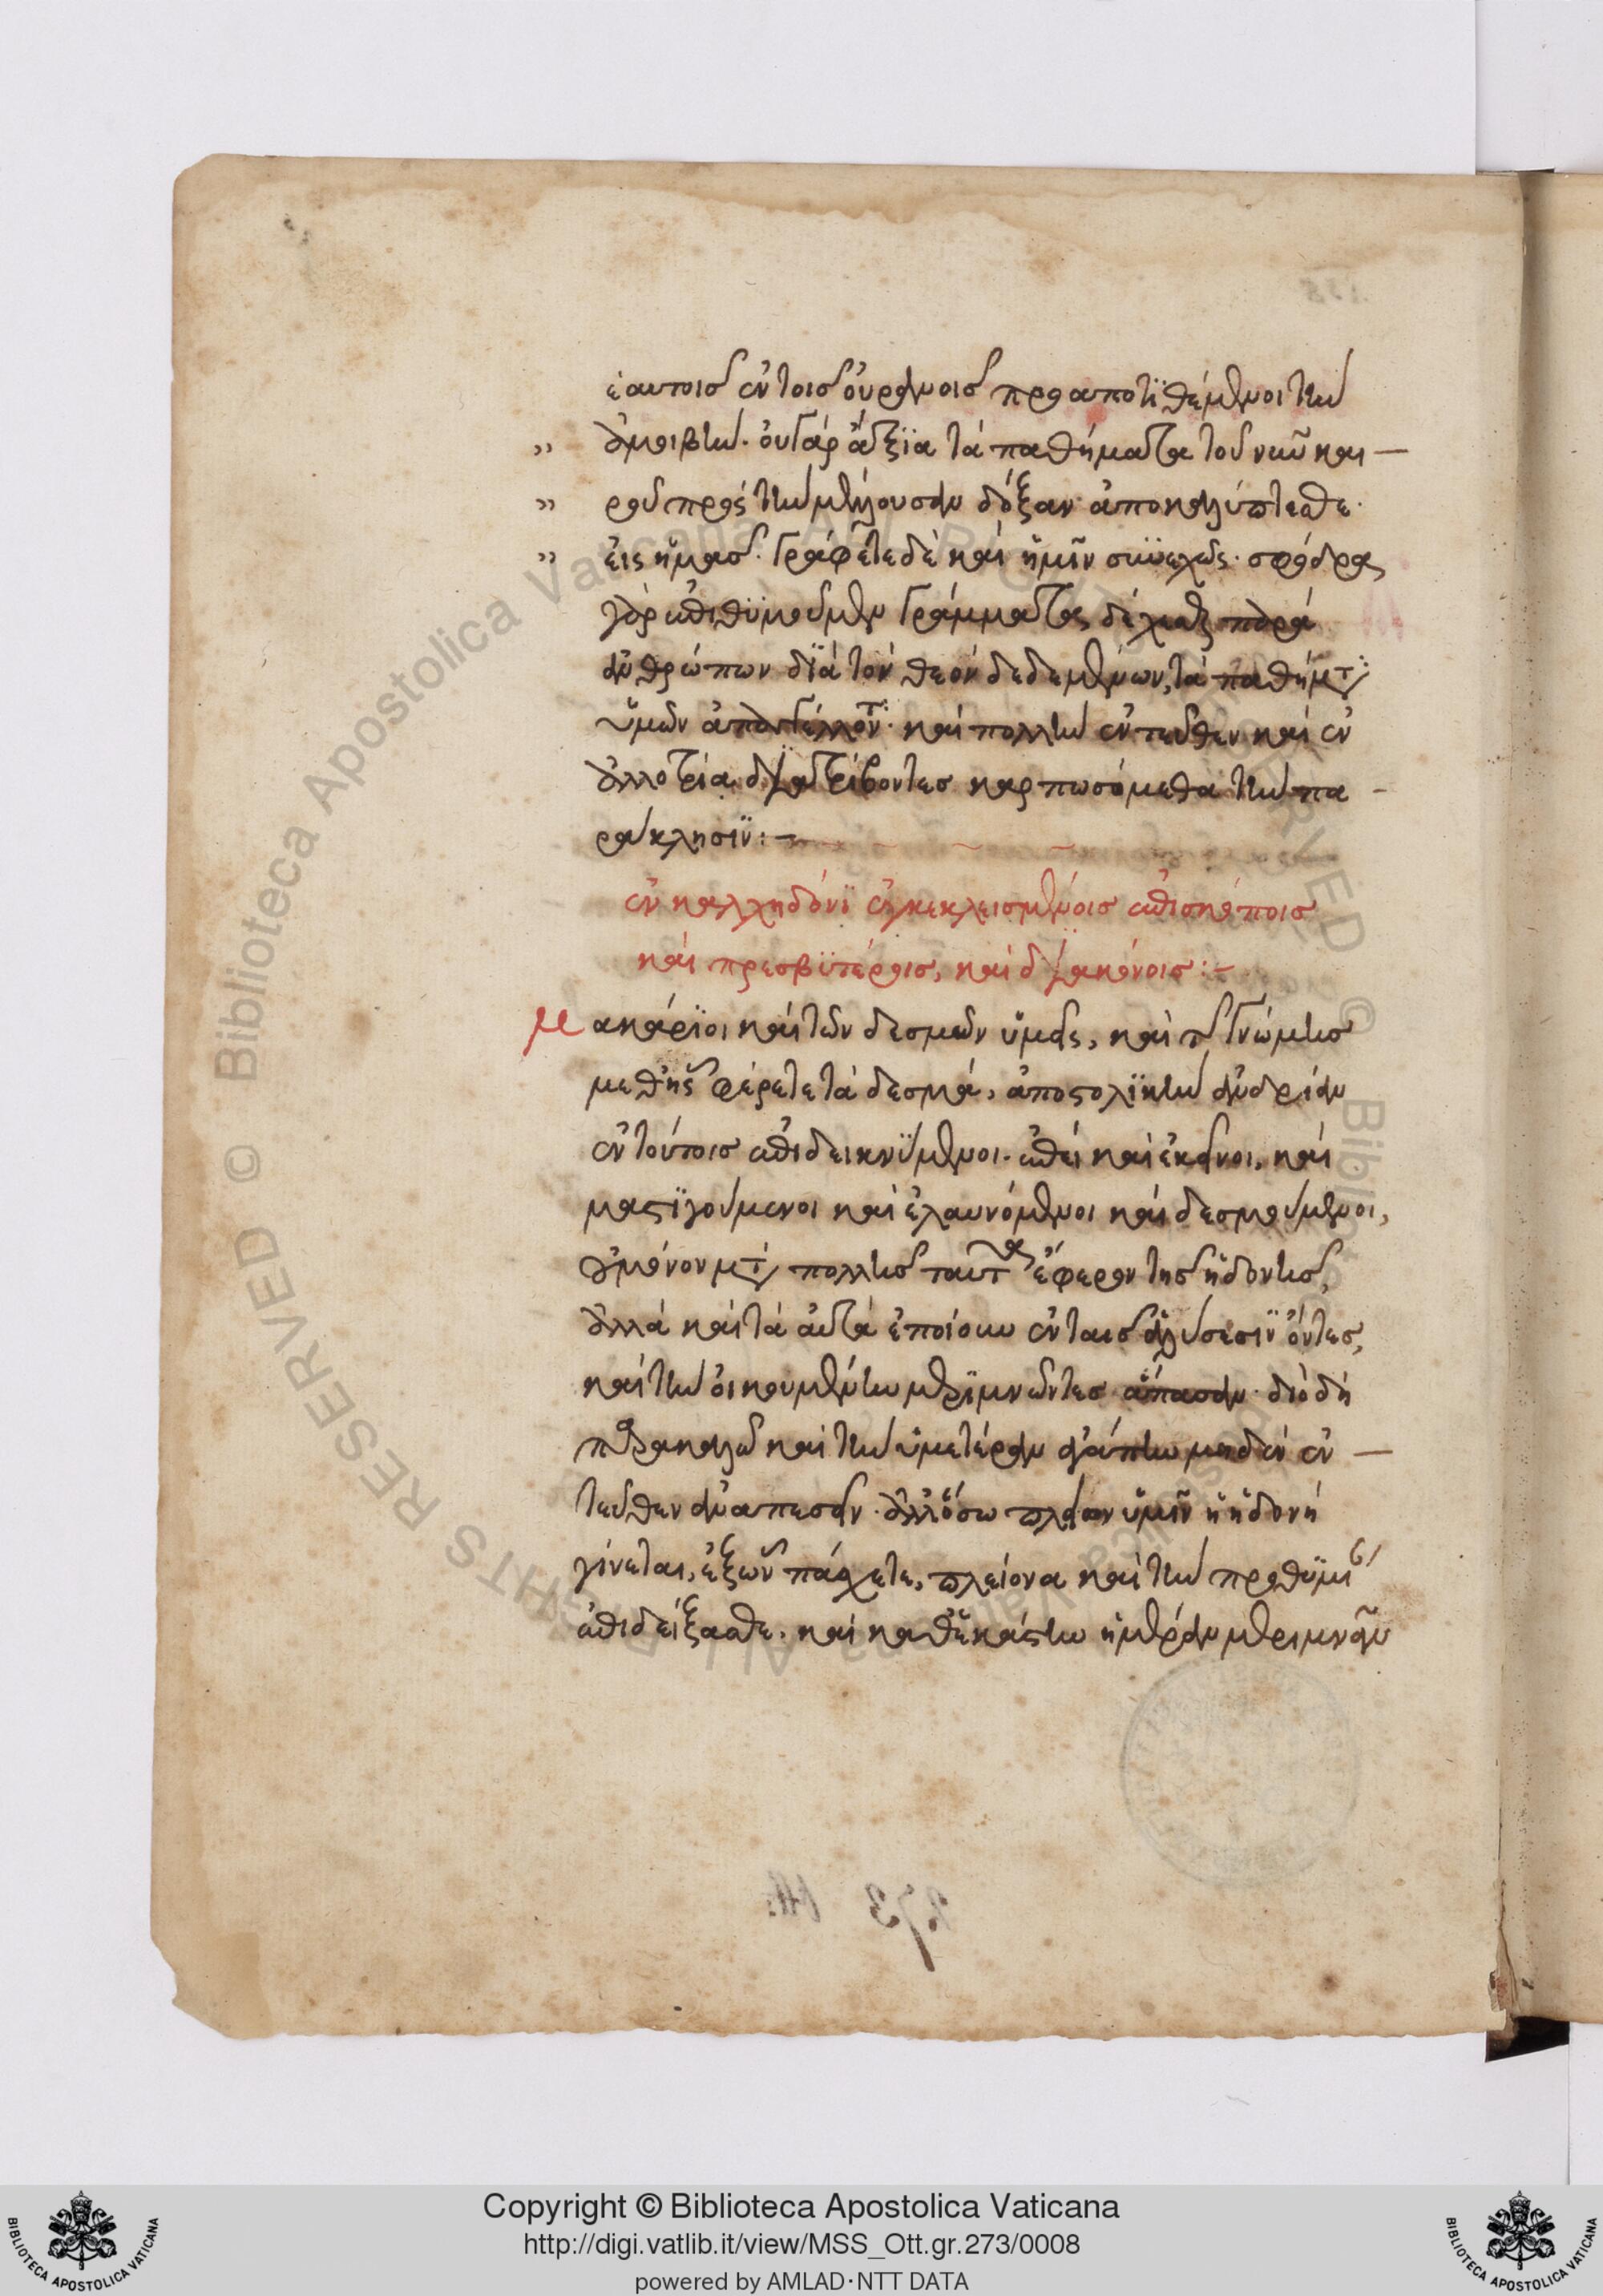 ἑαυτοῖσ ἐν τοῖσ οὐρανοῖσ προαποτϊθέμενοι τὴν
ἀμοιβήν. οὐ γὰρ ἄξϊα τὰ παθήματα τοῦ νῦν και
ροῦ πρὸς τὴν μέλλουσαν δόξαν ἀποκαλύπτεσθε.
εἰς ἡμᾶσ. Γράφετε δὲ καὶ ἡμῖν συνεχῶς. σφόδρα
γὰρ ἐπιθϋμοῦμεν Γράμματα δέχεσθαι παρὰ
ἀνθρώπων δϊὰ τὸν θεὸν δεδεμένων, τὰ παθήματα
ὑμῶν ἀποστέλλοντα. καὶ πολλὴν ἐντεῦθεν καὶ ἐν
ἀλλοτρία διατρίβοντεσ καρπωσόμεθα τὴν πα
ράκλησϊν:
ἐν καλχηδόνϊ ἐγκεκλεισμένοισ ἐπισκόποισ
καὶ πρεσβϋτέροισ, καὶ διακόνοισ:
Μακάρϊοι καὶ τῶν δεσμῶν ὑμεῖς, καὶ τῆσ Γνώμησ
μεθ' ἧσ φέρετε τὰ δεσμά, ἀποστολϊκὴν ἀνδρίαν
ἐν τούτοισ ἐπιδεικνϋμενοι. ἐπεὶ καὶ ἐκεῖνοι, καὶ
μαστϊγούμενοι καὶ ἐλαυνόμενοι καὶ δεσμούμενοι,
οὐ μόνον μετὰ πολλῆσ ταῦτα ἔφερον τῆσ ἡδονῆσ,
ἀλλὰ καὶ τὰ αὐτὰ ἐποίουν ἐν ταῖσ ἁλύσεσϊν ὄντεσ,
καὶ τὴν οἰκουμένην μερϊμνῶντεσ ἅπασαν. διὸ δὴ
παρακαλῶ καὶ τὴν ὑμετέραν ἀγάπην μηδὲν ἐν
τεῦθεν ἀναπεσεῖν. ἀλλ' ὅσω πλεῖον ὑμῖν ἡ ἡδονὴ
γίνεται, ἐξ ὧν πάσχετε, πλείονα καὶ τὴν προθϋμίαν
ἐπιδείξασθε. καὶ καθ' ἑκάστην ἡμέραν μεριμνᾶν
Copyright © Biblioteca Apostolica Vaticana
http://digi.vatlib.it/view/MSS_Ott.gr.273/0008
powered by AMLAD·NTT DATA